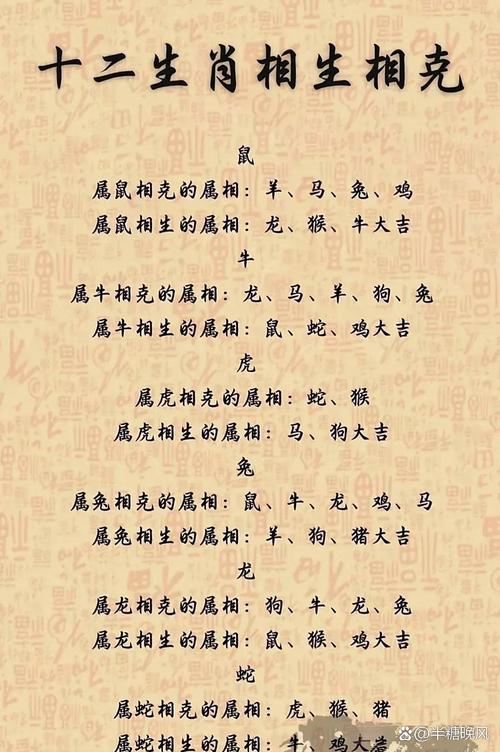 十二生肖相生相克
鼠
属鼠相克的属相：羊、马、兔、鸡
属鼠相生的属相：龙、猴、牛大吉
牛
属牛相克的属相：龙、马、羊、狗、兔
属牛相生的属相：鼠、蛇、鸡大吉
虎
属虎相克的属相：蛇、猴
属虎相生的属相：马、狗大吉
兔
属兔相克的属相：鼠、牛、龙、鸡、马
属兔相生的属相：羊、狗、猪大吉
龙
属龙相克的属相：狗、牛、龙、兔
属龙相生的属相：鼠、猴、鸡大吉
蛇
属蛇相克的属相：虎、猴、猪
属蛇相生的属相：牛、鸡大吉
@半糖晚风